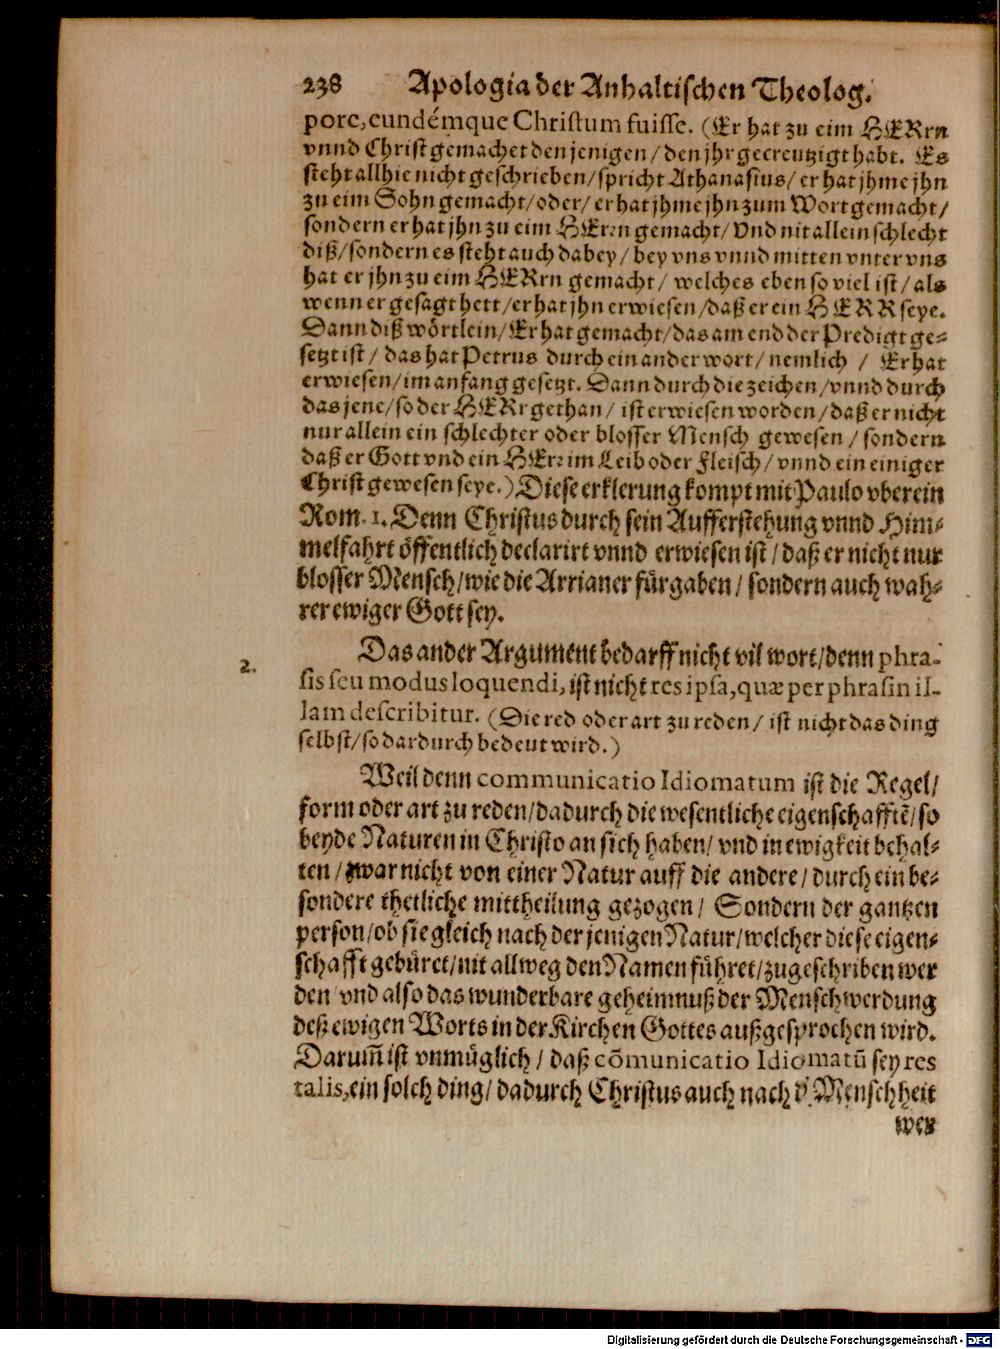 238 Apologia der Anhaltischen Theolog.
pore, eundémque Christum fuisse. (Er hat zu eim HERrn
vnnd Christ gemachet den jenigen / den jhr gecreutzigt habt. Es
steht allhie nicht geschrieben / spricht Athanasius / er hat jhme jhn
zu eim Sohn gemacht / oder / er hat jhme jhn zum Wort gemacht /
sondern er hat jhn zu eim HErrn gemacht / Vnd nit allein schlecht
diß / sondern es steht auch dabey / bey vns vnnd mitten vnter vns
hat er jhn zu eim HERrn gemacht / welches eben so viel ist / als
wenn er gesagt hett / er hat jhn erwiesen / daß er ein HERR seye.
Dann diß wörtlein / Er hat gemacht / das am end der Predigt ge-
setzt ist / das hat Petrus durch ein ander wort / nemlich / Er hat
erwiesen / im anfang gesetzt. Dann durch die zeichen / vnnd durch
das jene / so der HERr gethan / ist erwiesen worden / daß er nicht
nur allein ein schlechter oder blosser Mensch gewesen / sondern
daß er Gott vnd ein HErr im Leib oder Fleisch / vnnd ein einiger
Christ gewesen seye.) Diese erklerung kompt mit Paulo vberein
Rom. 1. Denn Christus durch sein Aufferstehung vnnd Him-
melfahrt öffentlich declarirt vnnd erwiesen ist / daß er nicht nur
blosser Mensch / wie die Arrianer fürgaben / sondern auch wah-
rer ewiger Gott sey.
2. Das ander Argument bedarff nicht vil wort / denn phra-
sis seu modus loquendi, ist nicht res ipsa, quæ per phrasin il-
lam describitur. (Die red oder art zu reden / ist nicht das ding
selbst / so dardurch bedeut wird.)
Weil denn communicatio Idiomatum ist die Regel /
form oder art zu reden / dadurch die wesentliche eigenschafftẽ / so
beyde Naturen in Christo an sich haben / vnd in ewigkeit behal-
ten / zwar nicht von einer Natur auff die andere / durch ein be-
sondere thetliche mittheilung gezogen / Sondern der gantzen
person / ob sie gleich nach der jenigen Natur / welcher diese eigen-
schafft gebüret / nit allweg den Namen führet / zugeschriben wer
den vnd also das wunderbare geheimnuß der Menschwerdung
deß ewigen Worts in der Kirchen Gottes außgesprochen wird.
Darum̃ ist vnmüglich / daß cõmunicatio Idiomatũ sey res
talis, ein solch ding / dadurch Christus auch nach d' Menschheit
wer
Digitalisierung gefördert durch die Deutsche Forschungsgemeinschaft - DFG